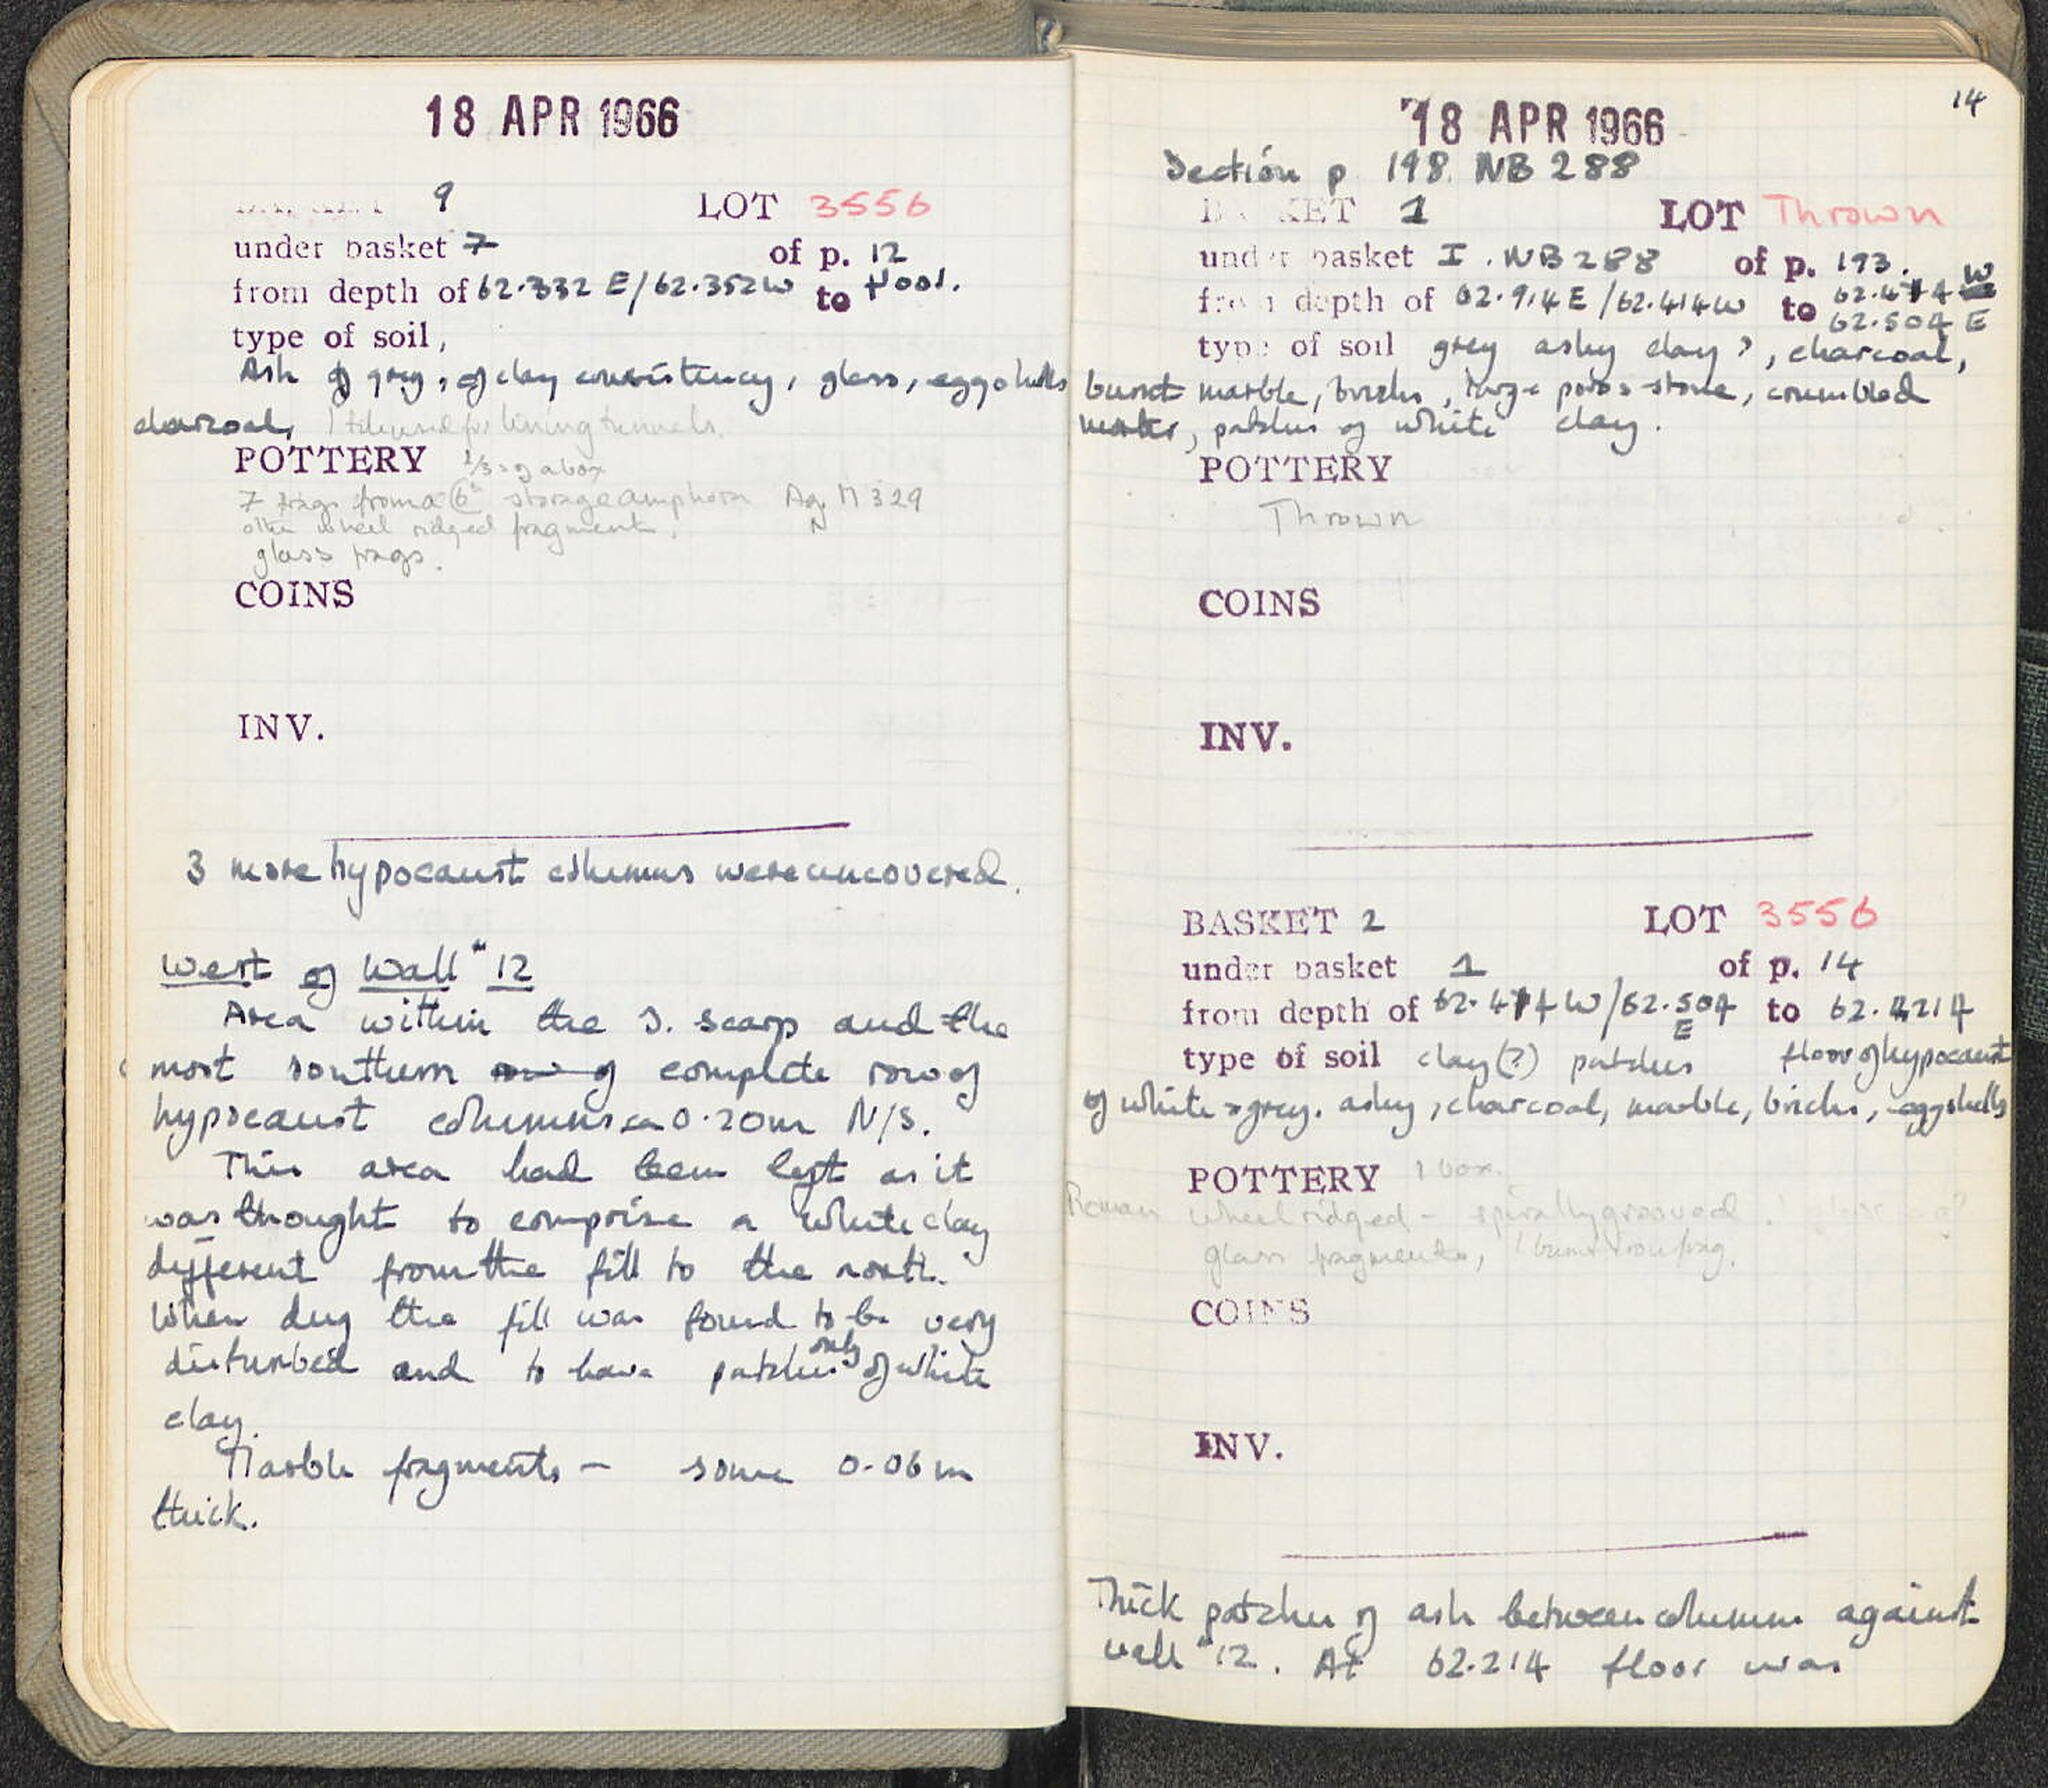 18 APR 1966
9 LOT 3556
under basket 7 of p. 12
from depth of 62.332 E/62.352W to floor.
type of soil,
Ash of grey, of clay consistency, glass, eggshells
charcoal, 1 tile used for lining tunnels.
POTTERY 1/3 of a box
7 frags from a storage amphora Ag. M 329
other wheel ridged fragment.
glass frags.
COINS
INV.
3 more hypocaust columns were uncovered.
West of Wall "12
Area within the S. scarp and the
most southern row of complete row of
hypocaust columns ca 0.20m N/S.
This area had been left as it
was thought to comprise a white clay
different from the fill to the north.
When dug the fill was found to be very
disturbed and to have patches only of white
clay.
Marble fragments - some 0.06m
thick.
14
18 APR 1966
Section p 198. NB 288
BASKET 1 LOT Thrown
under basket I. NB 288 of p. 193.
from depth of 62.914E/62.414W to 62.474 W
62.504 E
type of soil grey ashy clay?, charcoal,
burnt marble, bricks, large poros stone, crumbled
patches of white clay.
POTTERY
Thrown
COINS
INV.
BASKET 2 LOT 3556
under basket 1 of p. 14
from depth of 62.474 W/62.504 E to 62.214
type of soil clay(?) patches floor of hypocaust
of white & grey. ashy, charcoal, marble, bricks, eggshells
POTTERY 1 box.
Roman wheel ridged - spirally grooved.
glass fragments, 1 burnt frag.
COINS
INV.
Thick patches of ash between columns against
wall "12. At 62.214 floor was